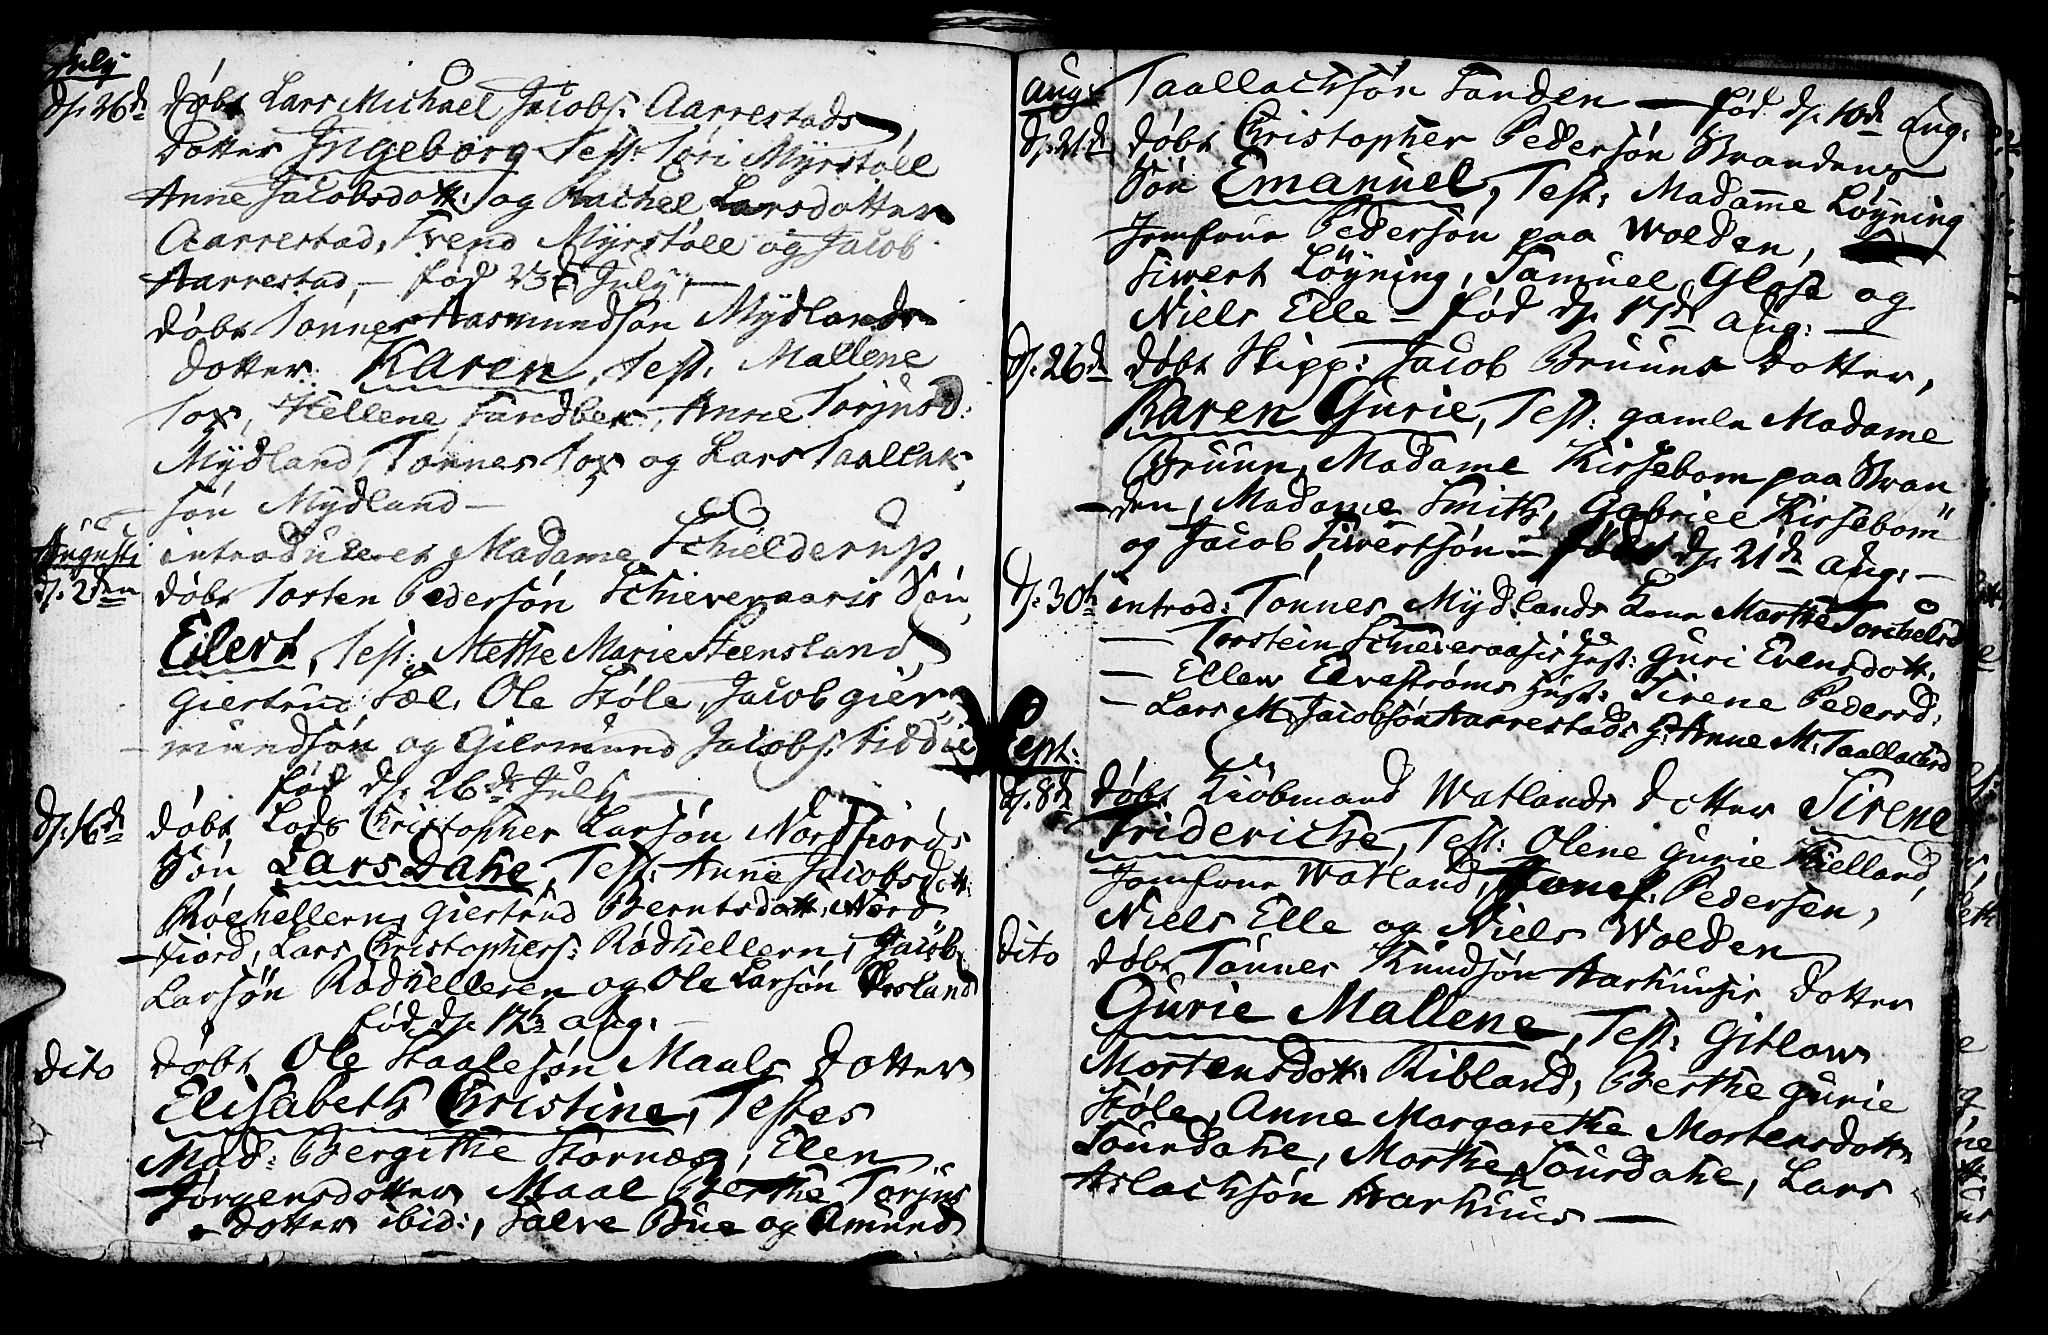 July
d. 26de døbt Lars Michael Jacobs: Aarrestads
Dotter Ingeborg Test: Tori Myrstøll
Anne Jacobsdott: og Rachel Larsdotter
Aarrestad, Trend Myrstøll og Jacob
Aarrestad, – fød 23de July, —
døbt Tønnes Aasmundsøn Mydlands
Dotter: Karen, Test. Mallene
Tox, Hellene Sandbek, Anne Torjusd:
Mydland, Tønnes Tox og Lars Taallak-
søn Mydland —
Augusti introduceret Madame Schielderup
d. 2den døbt Tosten Pedersøn Schieveraasis Søn
Eilert, Test: Methe Marie Steensland,
Giertrud Sæl. Ole Støle, Jacob gier-
mundsøn og Giermund Jacobs: Siddie
fød d. 26de July —
d. 16de døbt Lods Christopher Larsøn Nordfiords
Søn Lars Dahe, Test: Anne Jacobsdott:
Røehelleren, Giertrud Berntsdott: Nord-
fiord, Lars Christophers: Rødhelleren, Jacob
Larsøn Rødhelleren og Ole Larsøn
fød d. 12te aug: —
dito døbt Ole Staalesøn Maals Dotter
Elisabeth Christine, Testes
Mad: Bergithe Stornæs, Elen
Jørgensdotter Maal Berthe Torjus
dotter ibid:, Salve Bue og Amund
Aug: Taallachsøn Sanden — fød d. 10de Aug:
d. 21de døbt Christopher Pedersøn Brandens
Søn Emanuel, Test: Madamme Løyning
Jomfrue Pedersøn paa Wolden,
Siwert Løyning, Samuel Glose og
Niels Elle – fød d. 17de aug: —
d. 26de døbt Skipp: Jacob Bruuns Dotter,
Karen Gurie, Test: gamle Madame
Bruun, Madame Kirsebom paa Bran
den, Madame Smith, Gabriel Kirsebom
og Jacob Siwertsøn – fød d. 21de aug: —
d. 30te introd: Tønnes Mydlands Kone Marthe Torchelsd
— Torstein Schieveraasis Hust: Guri Evensdott.
— Ellew Elvestrøms Hust: Sirene Pedersd:
— Lars M: Jacobsøn Aarrestads H: Anne M: Taallachsd
Sept:
d. 8de døbt Kiøbmand Watlands Dotter Sirene
Frideriche, Test: Olene Gurie Kielland,
Jomfrue Watland, Pedersen,
Niels Elle og Niels Wolden
dito døbt Tønnes Knudsøn Aarhuusis Dotter
Gurie Mallene, Test: Gitlow
Mortensdott: Ribland, Berthe Gurie
Støle, Anne Margarethe Mortensdott:
Sourdahe, Marthe Sourdahe, Lars
Aslachsøn Aarhuus —